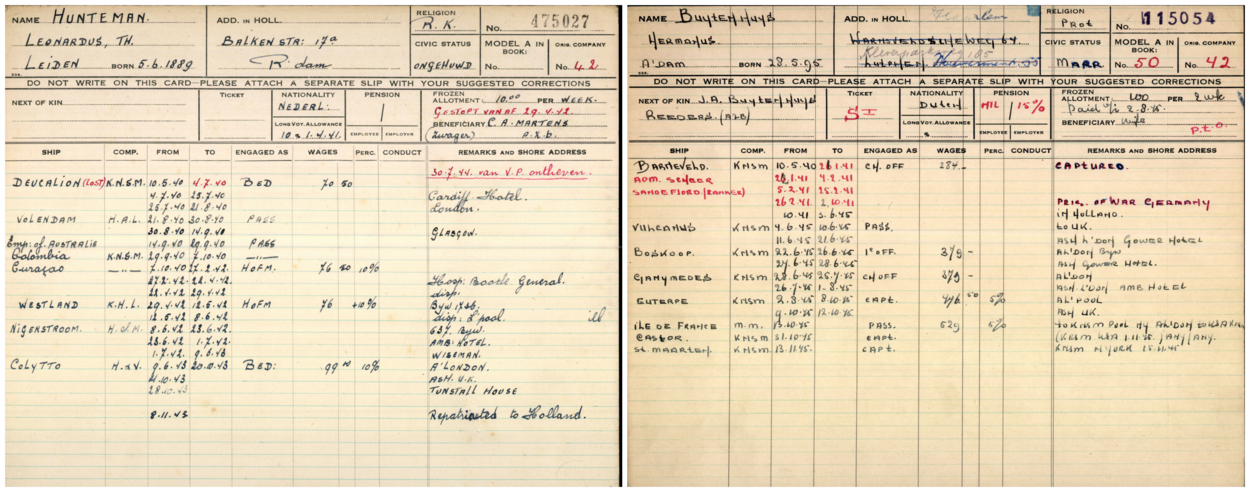 NAME HUNTEMAN.
ADD. IN HOLL.
RELIGION
R.K.
No. 475027
LEONARDUS, TH.
BALKENSTR: 17a
CIVIC STATUS
MODEL A IN BOOK:
ORIG. COMPANY
LEIDEN BORN 5.6.1889
R'dam
ONGEHUWD
No.
No. 42
DO NOT WRITE ON THIS CARD—PLEASE ATTACH A SEPARATE SLIP WITH YOUR SUGGESTED CORRECTIONS
NEXT OF KIN
TICKET
NATIONALITY
NEDERL.
PENSION
FROZEN ALLOTMENT. 10.00 PER WEEK.
GESTOPT VANAF 29.4.42.
LONG VOY. ALLOWANCE
BENEFICIARY C.A. MARTENS
10 s 1.4.41.
EMPLOYEE EMPLOYER
(zwager)
SHIP COMP. FROM TO ENGAGED AS WAGES PERC. CONDUCT REMARKS AND SHORE ADDRESS
30.7.44. van V.P. ontheven.
DEUCALION (LOST) K.N.S.M. 10.5.40 4.7.40 BED 70 50
4.7.40 25.7.40 Cardiff Hotel.
25.7.40 21.8.40 London.
VOLENDAM H.A.L. 21.8.40 30.8.40 PASS
30.8.40 14.9.40 GLASGOW.
Emp: of AUSTRALIE 14.9.40 29.9.40 PASS
Colombia K.N.S.M. 29.9.40 7.10.40
Curaçao 7.10.40 27.2.42. HOFM. 76 50 10%
27.2.42. 22.4.42. Hosp: Bootle General.
22.4.42 29.4.42 disp.
WESTLAND K.H.L. 29.4.42 12.5.42 HOFM 76 +10%
12.5.42 8.6.42 disp: L'pool. ill
NIGERSTROOM. H.d.M. 8.6.42 23.6.42.
23.6.42 1.7.42. AMB: HOTEL.
1.7.42. 9.6.43 WISEMAN.
COLYTTO H.&V. 9.6.43 20.10.43 BED: 99 10%
A'LONDON.
ASH. U.K.
28.10.43 TUNSTALL HOUSE
8.11.43 Repatriated to Holland.
NAME BUYTENHUYS
ADD. IN HOLL.
RELIGION
PROT
No. 115054
HERMANUS.
CIVIC STATUS
MODEL A IN BOOK:
ORIG. COMPANY
A'DAM BORN 28.5.95
MARR
No. 50
No. 42
DO NOT WRITE ON THIS CARD—PLEASE ATTACH A SEPARATE SLIP WITH YOUR SUGGESTED CORRECTIONS
NEXT OF KIN J.A. BUYTENHUYS
TICKET
SI
NATIONALITY
DUTCH
PENSION
NIL 15%
FROZEN ALLOTMENT. 100 PER 2 wk
REEDERS.
LONG VOY. ALLOWANCE
s
EMPLOYEE EMPLOYER
BENEFICIARY wife
P.T.O.
SHIP COMP. FROM TO ENGAGED AS WAGES PERC. CONDUCT REMARKS AND SHORE ADDRESS
BARNEVELD. KNSM 10.5.40 21.1.41 CH.OFF 284- CAPTURED.
ADM. SCHEER 21.1.41 5.2.41
SANDEFJORD (TANKER) 5.2.41 25.2.41
26.2.41 2.10.41 PRIS. OF WAR GERMANY
10.41 3.6.45 IN HOLLAND.
VULCANUS KNSM 4.6.45 10.6.45 PASS. TO UK.
11.6.45 21.6.45 ASH L'DON GOWER HOTEL
BOSKOOP. KNSM 22.6.45 26.6.45 1e OFF. 379-
24.6.45 28.6.45 ASH GOWER HOTEL.
GANYMEDES KNSM 28.6.45 25.7.45 CH.OFF 379- AL'DON
26.7.45 1.8.45 ASH L'DON AMB HOTEL
EUTERPE KNSM 2.8.45 8.10.45 CAPT. 476 50 5% AL'POOL
9.10.45 12.10.45 ASH UK.
ILE DE FRANCE M.M. 13.10.45 PASS. 529 5%
CASTOR. KNSM 31.10.45 CAPT.
ST. MAARTEN. KNSM 13.11.45 CAPT. KNSM N YORK 15.11.45